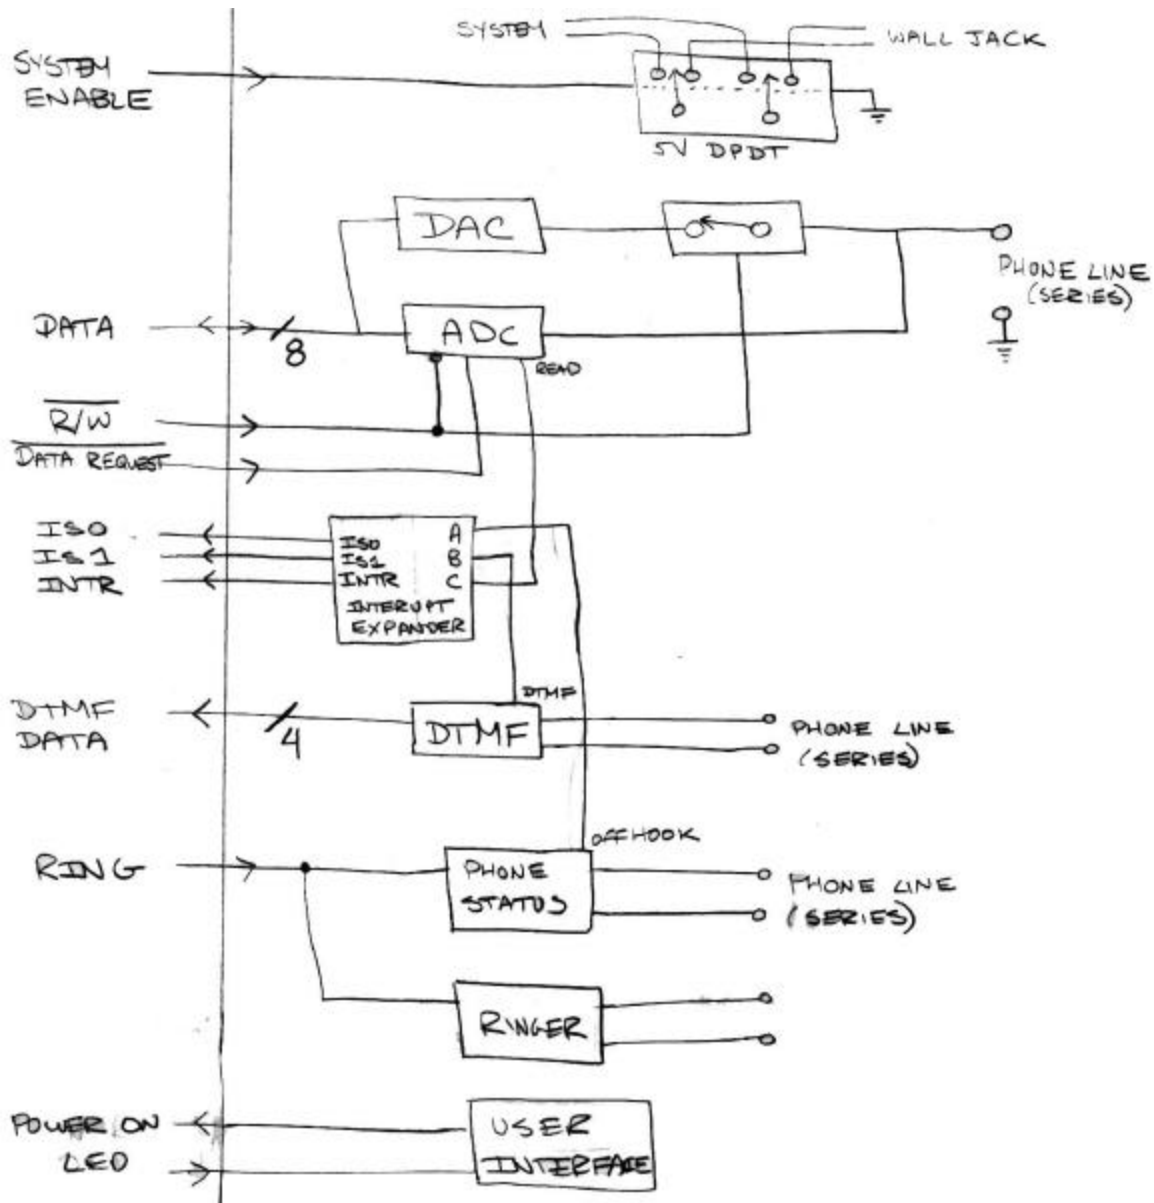 SYSTEM
WALL JACK
SYSTEM
ENABLE
5V DPDT
DAC
PHONE LINE
(SERIES)
DATA
8
ADC
READ
R/W
DATA REQUEST
IS0
IS1
INTR
IS0 A
IS1 B
INTR C
INTERUPT
EXPANDER
DTMF
DATA
4
DTMF
DTMF
PHONE LINE
(SERIES)
OFFHOOK
RING
PHONE
STATUS
PHONE LINE
(SERIES)
RINGER
POWER ON
LED
USER
INTERFACE